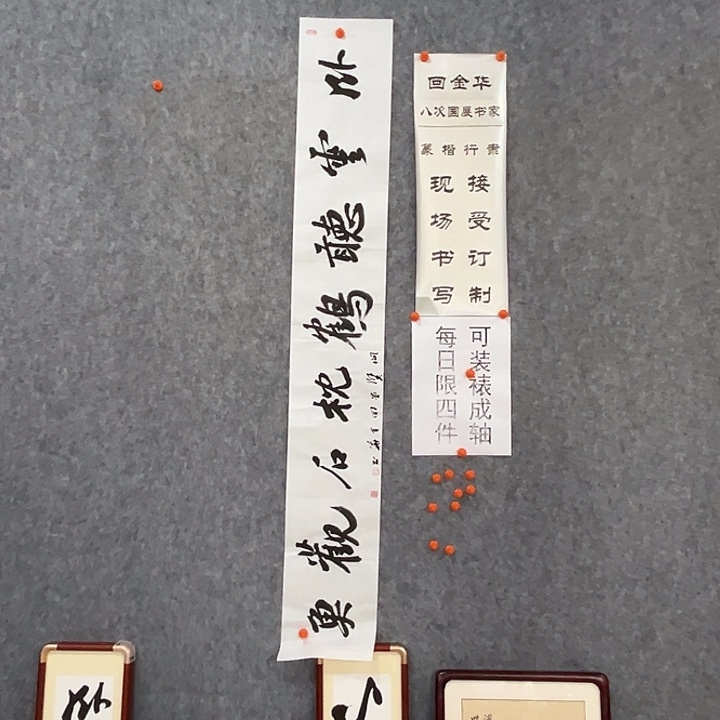 卧雲聽鶴枕石觀魚
回金华
八次国展书家
篆楷行隶
接受订制
现场书写
可装裱成轴
每日限四件